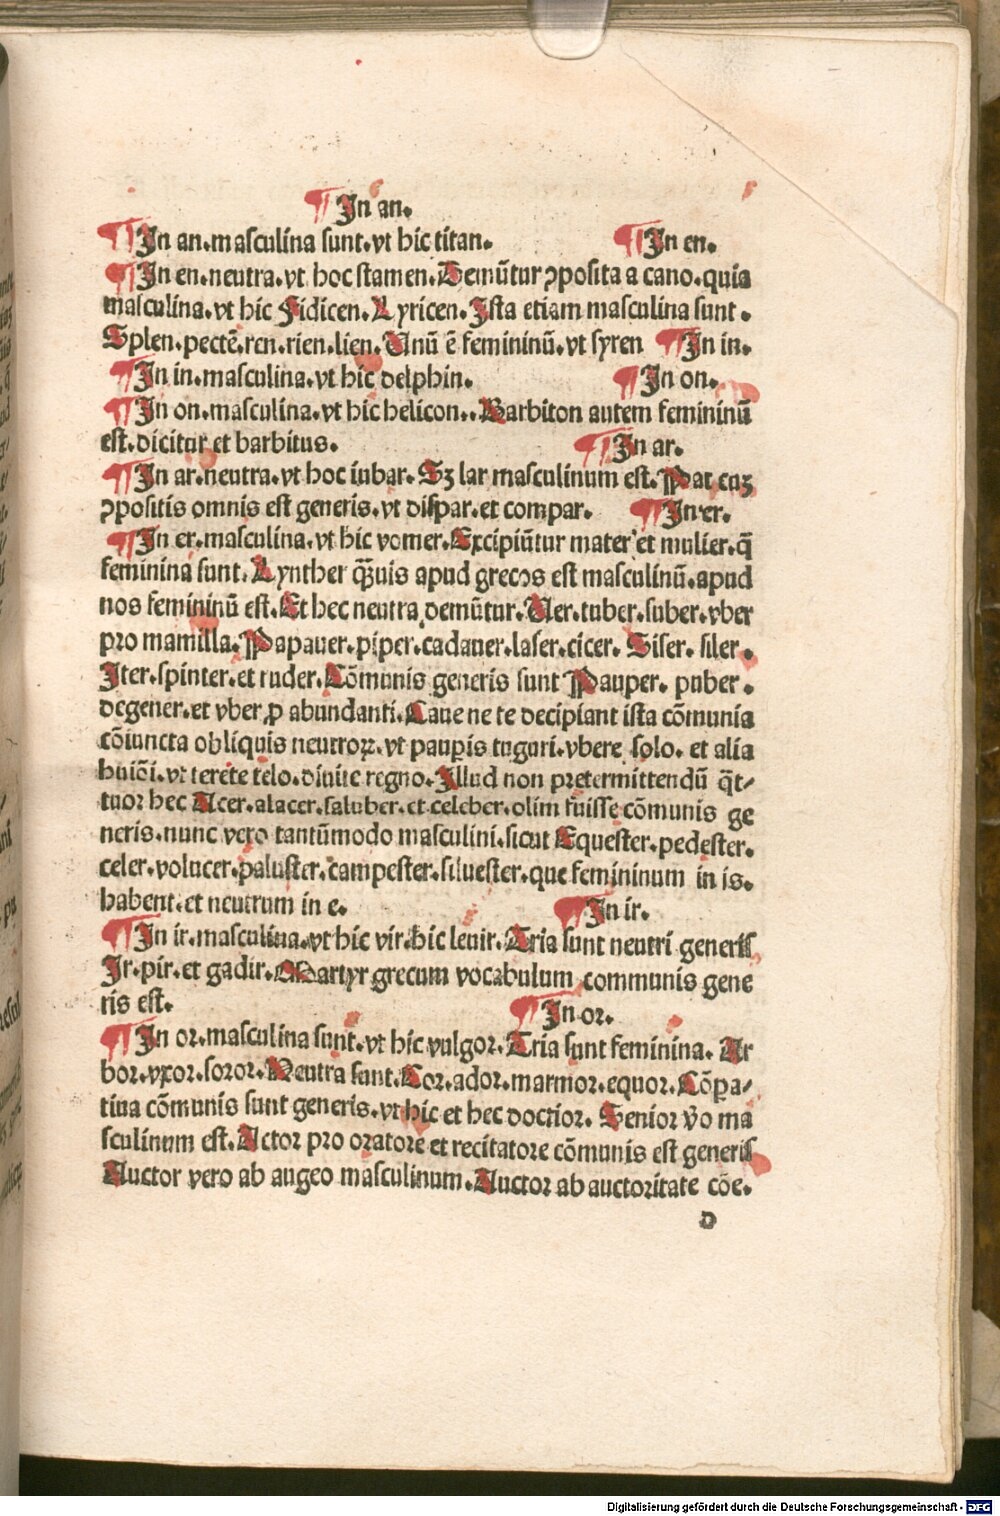 ¶ In an.
¶ In an. masculina sunt. vt hic titan. ¶ In en.
¶ In en. neutra. vt hoc stamen. Demūtur ꝯposita a cano. quia
masculina. vt hic Fidicen. Lyricen. Ista etiam masculina sunt.
Splen. pectē. ren. rien. lien. Unū ē femininū. vt syren ¶ In in.
¶ In in. masculina. vt hic delphin. ¶ In on.
¶ In on. masculina. vt hic helicon.. Barbiton autem femininū
est. dicitur et barbitus. ¶ In ar.
¶ In ar. neutra. vt hoc iubar. Sꝫ lar masculinum est. Par cuꝫ
ꝯpositis omnis est generis. vt dispar. et compar. ¶ In er.
¶ In er. masculina. vt hic vomer. Excipiūtur mater et mulier. q̄
feminina sunt. Lynther q̄uis apud grecos est masculinū. apud
nos femininū est. Et hec neutra demūtur. Uer. tuber. suber. vber
pro mamilla. Papauer. piper. cadauer. laser. cicer. Siser. siler.
Iter. spinter. et ruder. Cōmunis generis sunt Pauper. puber.
degener. et vber ꝓ abundanti. Caue ne te decipiant ista cōmunia
cōiuncta obliquis neutroꝝ. vt pauꝑis tuguri. vbere solo. et alia
huiōi. vt terete telo. diuite regno. Illud non pretermittendū q̄t-
tuor hec Acer. alacer. saluber. et celeber. olim fuisse cōmunis ge
neris. nunc vero tantūmodo masculini. sicut Equester. pedester.
celer. volucer. paluster. campester. siluester. que femininum in is.
habent. et neutrum in e. ¶ In ir.
¶ In ir. masculina. vt hic vir. hic leuir. Tria sunt neutri generis
Ir. pir. et gadir. Martyr grecum vocabulum communis gene
ris est. ¶ In or.
¶ In or. masculina sunt. vt hic vulgor. Tria sunt feminina. Ar
bor. vxor. soror. Neutra sunt. Cor. ador. marmor. equor. Cōꝑa-
tiua cōmunis sunt generis. vt hic et hec doctior. Senior v̄o ma
sculinum est. Actor pro oratore et recitatore cōmunis est generis
Auctor vero ab augeo masculinum. Auctor ab auctoritate cōe.
D
Digitalisierung gefördert durch die Deutsche Forschungsgemeinschaft - DFG